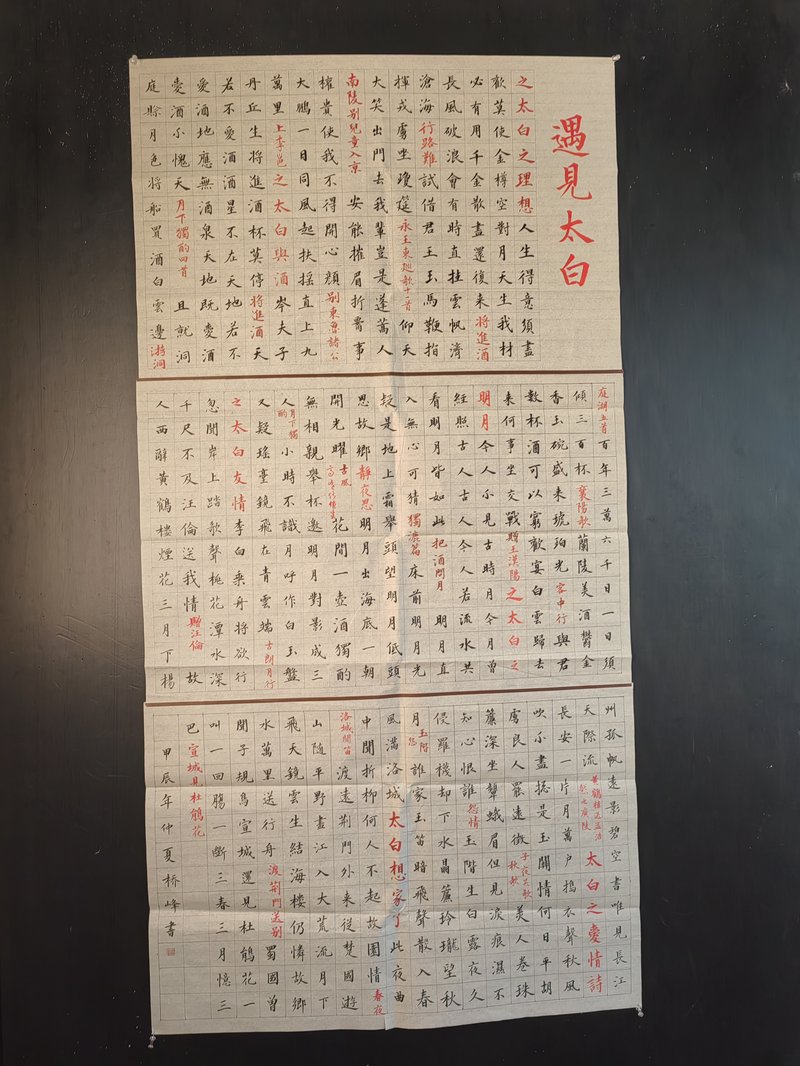 遇見太白
之太白之理想人生得意須盡
歡莫使金樽空對月天生我材
必有用千金散盡還復来將進酒
長風破浪會有時直挂雲帆濟
滄海行路難試借君王玉馬鞭指
揮戎虜坐瓊筵永王東廵歌十一首仰天
大笑出門去我輩豈是蓬蒿人
南陵别兒童入京安能摧眉折腰事
權貴使我不得開心顔别東魯諸公
大鵬一日同風起扶摇直上九
萬里上李邕之太白與酒岑夫子
丹丘生將進酒杯莫停將進酒天
若不愛酒酒星不在天地若不
愛酒地應無酒泉天地既愛酒
愛酒不愧天月下獨酌四首且就洞
庭賒月色將船買酒白雲邊游洞
庭湖五首百年三萬六千日一日須
傾三百杯襄陽歌蘭陵美酒鬱金
香玉碗盛来琥珀光客中行與君
數杯酒可以窮歡宴白雲歸去
来何事坐交戰贈王漢陽之太白之
明月今人不見古時月今月曾
經照古人古人今人若流水共
看明月皆如此把酒問月明月直
入無心可猜獨漉篇床前明月光
疑是地上霜舉頭望明月低頭
思故鄉靜夜思明月出海底一朝
開光曜古風花間一壺酒獨酌
無相親舉杯邀明月對影成三
人月下獨酌小時不識月呼作白玉盤
又疑瑶臺鏡飛在青雲端古朗月行
之太白友情李白乘舟將欲行
忽聞岸上踏歌聲桃花潭水深
千尺不及汪倫送我情贈汪倫故
人西辭黄鶴樓煙花三月下揚
州孤帆遠影碧空盡唯見長江
天際流黄鶴樓送孟浩然之廣陵太白之愛情詩
長安一片月萬户搗衣聲秋風
吹不盡總是玉關情何日平胡
虜良人罷遠征子夜吴歌秋歌美人卷珠
簾深坐顰蛾眉但見淚痕濕不
知心恨誰怨情玉階生白露夜久
侵羅襪却下水晶簾玲瓏望秋
月玉階怨誰家玉笛暗飛聲散入春
風滿洛城太白想家了此夜曲
中聞折柳何人不起故園情春夜
洛城聞笛渡遠荆門外来從楚國遊
山隨平野盡江入大荒流月下
飛天鏡雲生結海楼仍憐故鄉
水萬里送行舟渡荆門送别蜀國曾
聞子規鳥宣城還見杜鵑花一
叫一回腸一斷三春三月憶三
巴宣城見杜鵑花
甲辰年仲夏桥峰書